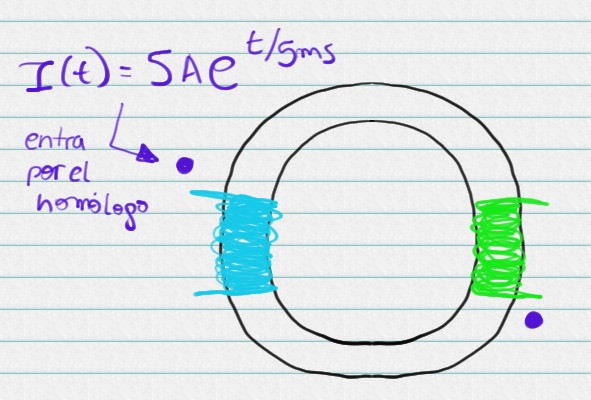 I(t) = 5 A e^t/5ms
entra
por el
homólogo